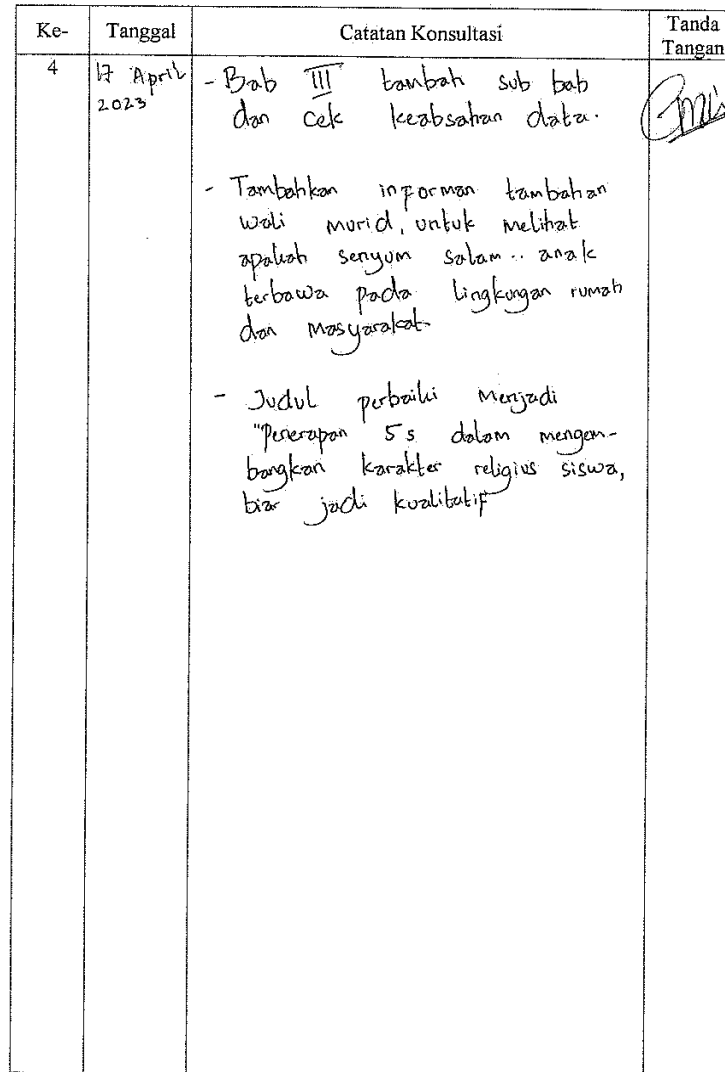 Ke- Tanggal Catatan Konsultasi Tanda Tangan
4 17 April 2023
- Bab III tambah sub bab
dan cek keabsahan data.
- Tambahkan informan tambahan
wali murid, untuk melihat
apakah senyum salam.. anak
terbawa pada lingkungan rumah
dan masyarakat.
- Judul perbaiki menjadi
"Penerapan 5s dalam mengem-
bangkan karakter religius siswa,
biar jadi kualitatif